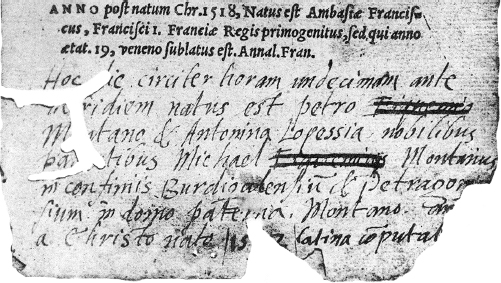 ANNO post natum Chr. 1518, Natus est Ambasiæ Francis-
cus, Francisci I. Franciæ Regis primogenitus, sed qui anno
ætat. 19, veneno sublatus est. Annal. Fran.
Hoc die circiter horam undecimam ante
meridiem natus est petro
Montano & Antonina Lopessia nobilibus
parentibus Michael Montanus
in confinis Burdigalensiū & Petragor
sium in domo paterna Montano
a Christo nato latina cōputat